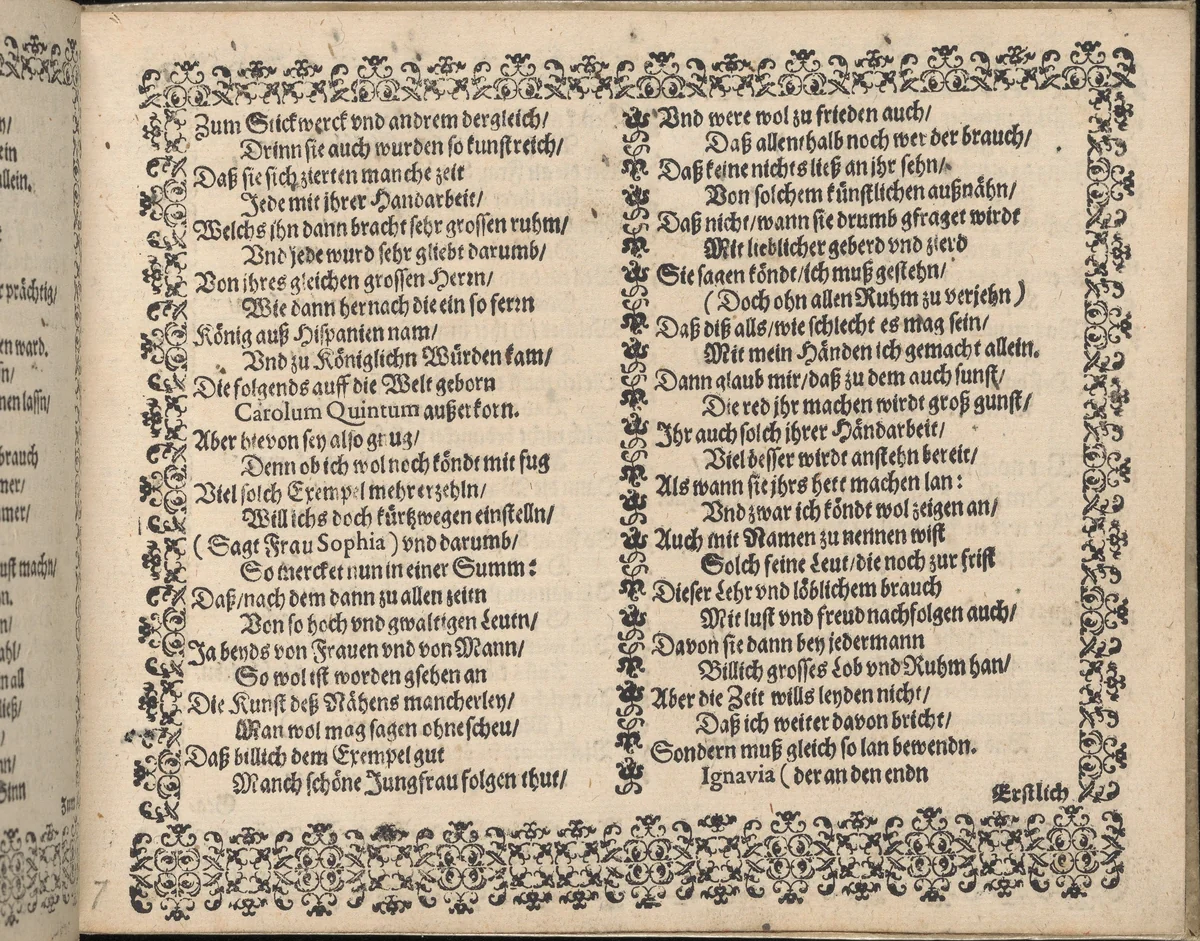 n/
ein
allein.
r prächtig/
en ward.
n/
nen lassn/
brauch
mer/
mer/
ust machn/
n.
n/
ahl/
n all
ließ/
/
nn/
Sinn
Zum
Zum Stickwerck vnd andrem dergleich/
Drinn sie auch wurden so kunstreich/
Daß sie sich zierten manche zeit
Jede mit ihrer Handarbeit/
Welchs ihn dann bracht sehr grossen ruhm/
Vnd jede wurd sehr gliebt darumb/
Von ihres gleichen grossen Herrn/
Wie dann hernach die ein so ferrn
König auß Hispanien nam/
Vnd zu Königlichn Würden kam/
Die folgends auff die Welt geborn
Carolum Quintum außerkorn.
Aber hievon sey also gnug/
Denn ob ich wol noch köndt mit fug
Viel solch Exempel mehr erzehln/
Will ichs doch kürtzwegen einstelln/
( Sagt Frau Sophia ) vnd darumb/
So mercket nun in einer Summ:
Daß/nach dem dann zu allen zeitn
Von so hoch vnd gwaltigen Leutn/
Ja beyds von Frauen vnd von Mann/
So wol ist worden gsehen an
Die Kunst deß Nähens mancherley/
Man wol mag sagen ohne scheu/
Daß billich dem Exempel gut
Manch schöne Jungfrau folgen thut/
Vnd were wol zu frieden auch/
Daß allenthalb noch wer der brauch/
Daß keine nichts ließ an ihr sehn/
Von solchem künstlichen außnähn/
Daß nicht/wann sie drumb gfraget wirdt
Mit lieblicher geberd vnd zierd
Sie sagen köndt/ich muß gestehn/
( Doch ohn allen Ruhm zu verjehn )
Daß diß alls/wie schlecht es mag sein/
Mit mein Händen ich gemacht allein.
Dann glaub mir/daß zu dem auch sunst/
Die red ihr machen wirdt groß gunst/
Ihr auch solch ihrer Händarbeit/
Viel besser wirdt anstehn bereit/
Als wann sie ihrs hett machen lan:
Vnd zwar ich köndt wol zeigen an/
Auch mit Namen zu nennen wist
Solch feine Leut/die noch zur frist
Dieser Lehr vnd löblichem brauch
Mit lust vnd freud nachfolgen auch/
Davon sie dann bey jedermann
Billich grosses Lob vnd Ruhm han/
Aber die Zeit wills leyden nicht/
Daß ich weiter davon bricht/
Sondern muß gleich so lan bewendn.
Ignavia ( der an den endn
Erstlich
7